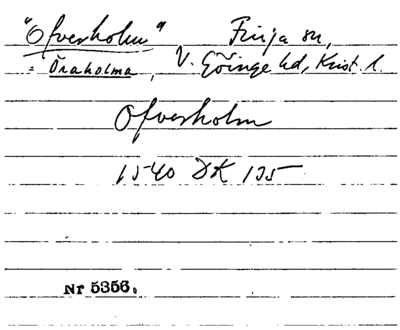 "Ofvesholm" Finja sn,
= Öraholma, V. Göinge hd, Krist. l.
Ofvesholm
1540 DK 135
Nr 5356.